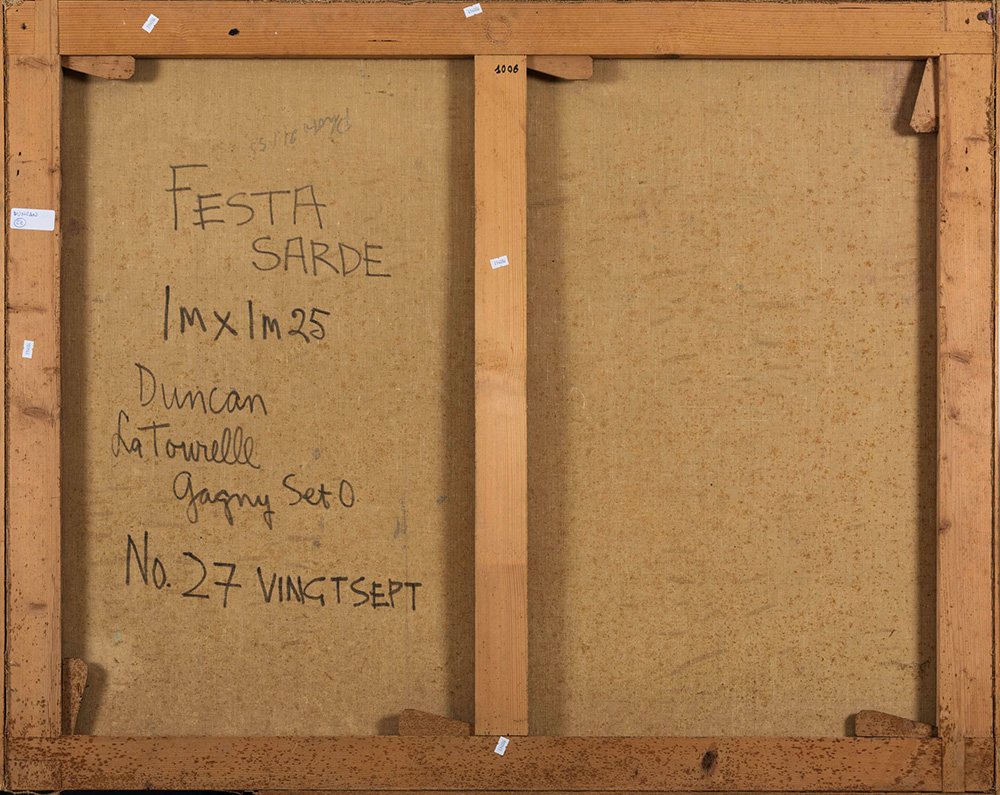 1006
FESTA
SARDE
1m x 1m 25
Duncan
LaTourelle
Gagny Set O
No. 27 VINGTSEPT
DUNCAN